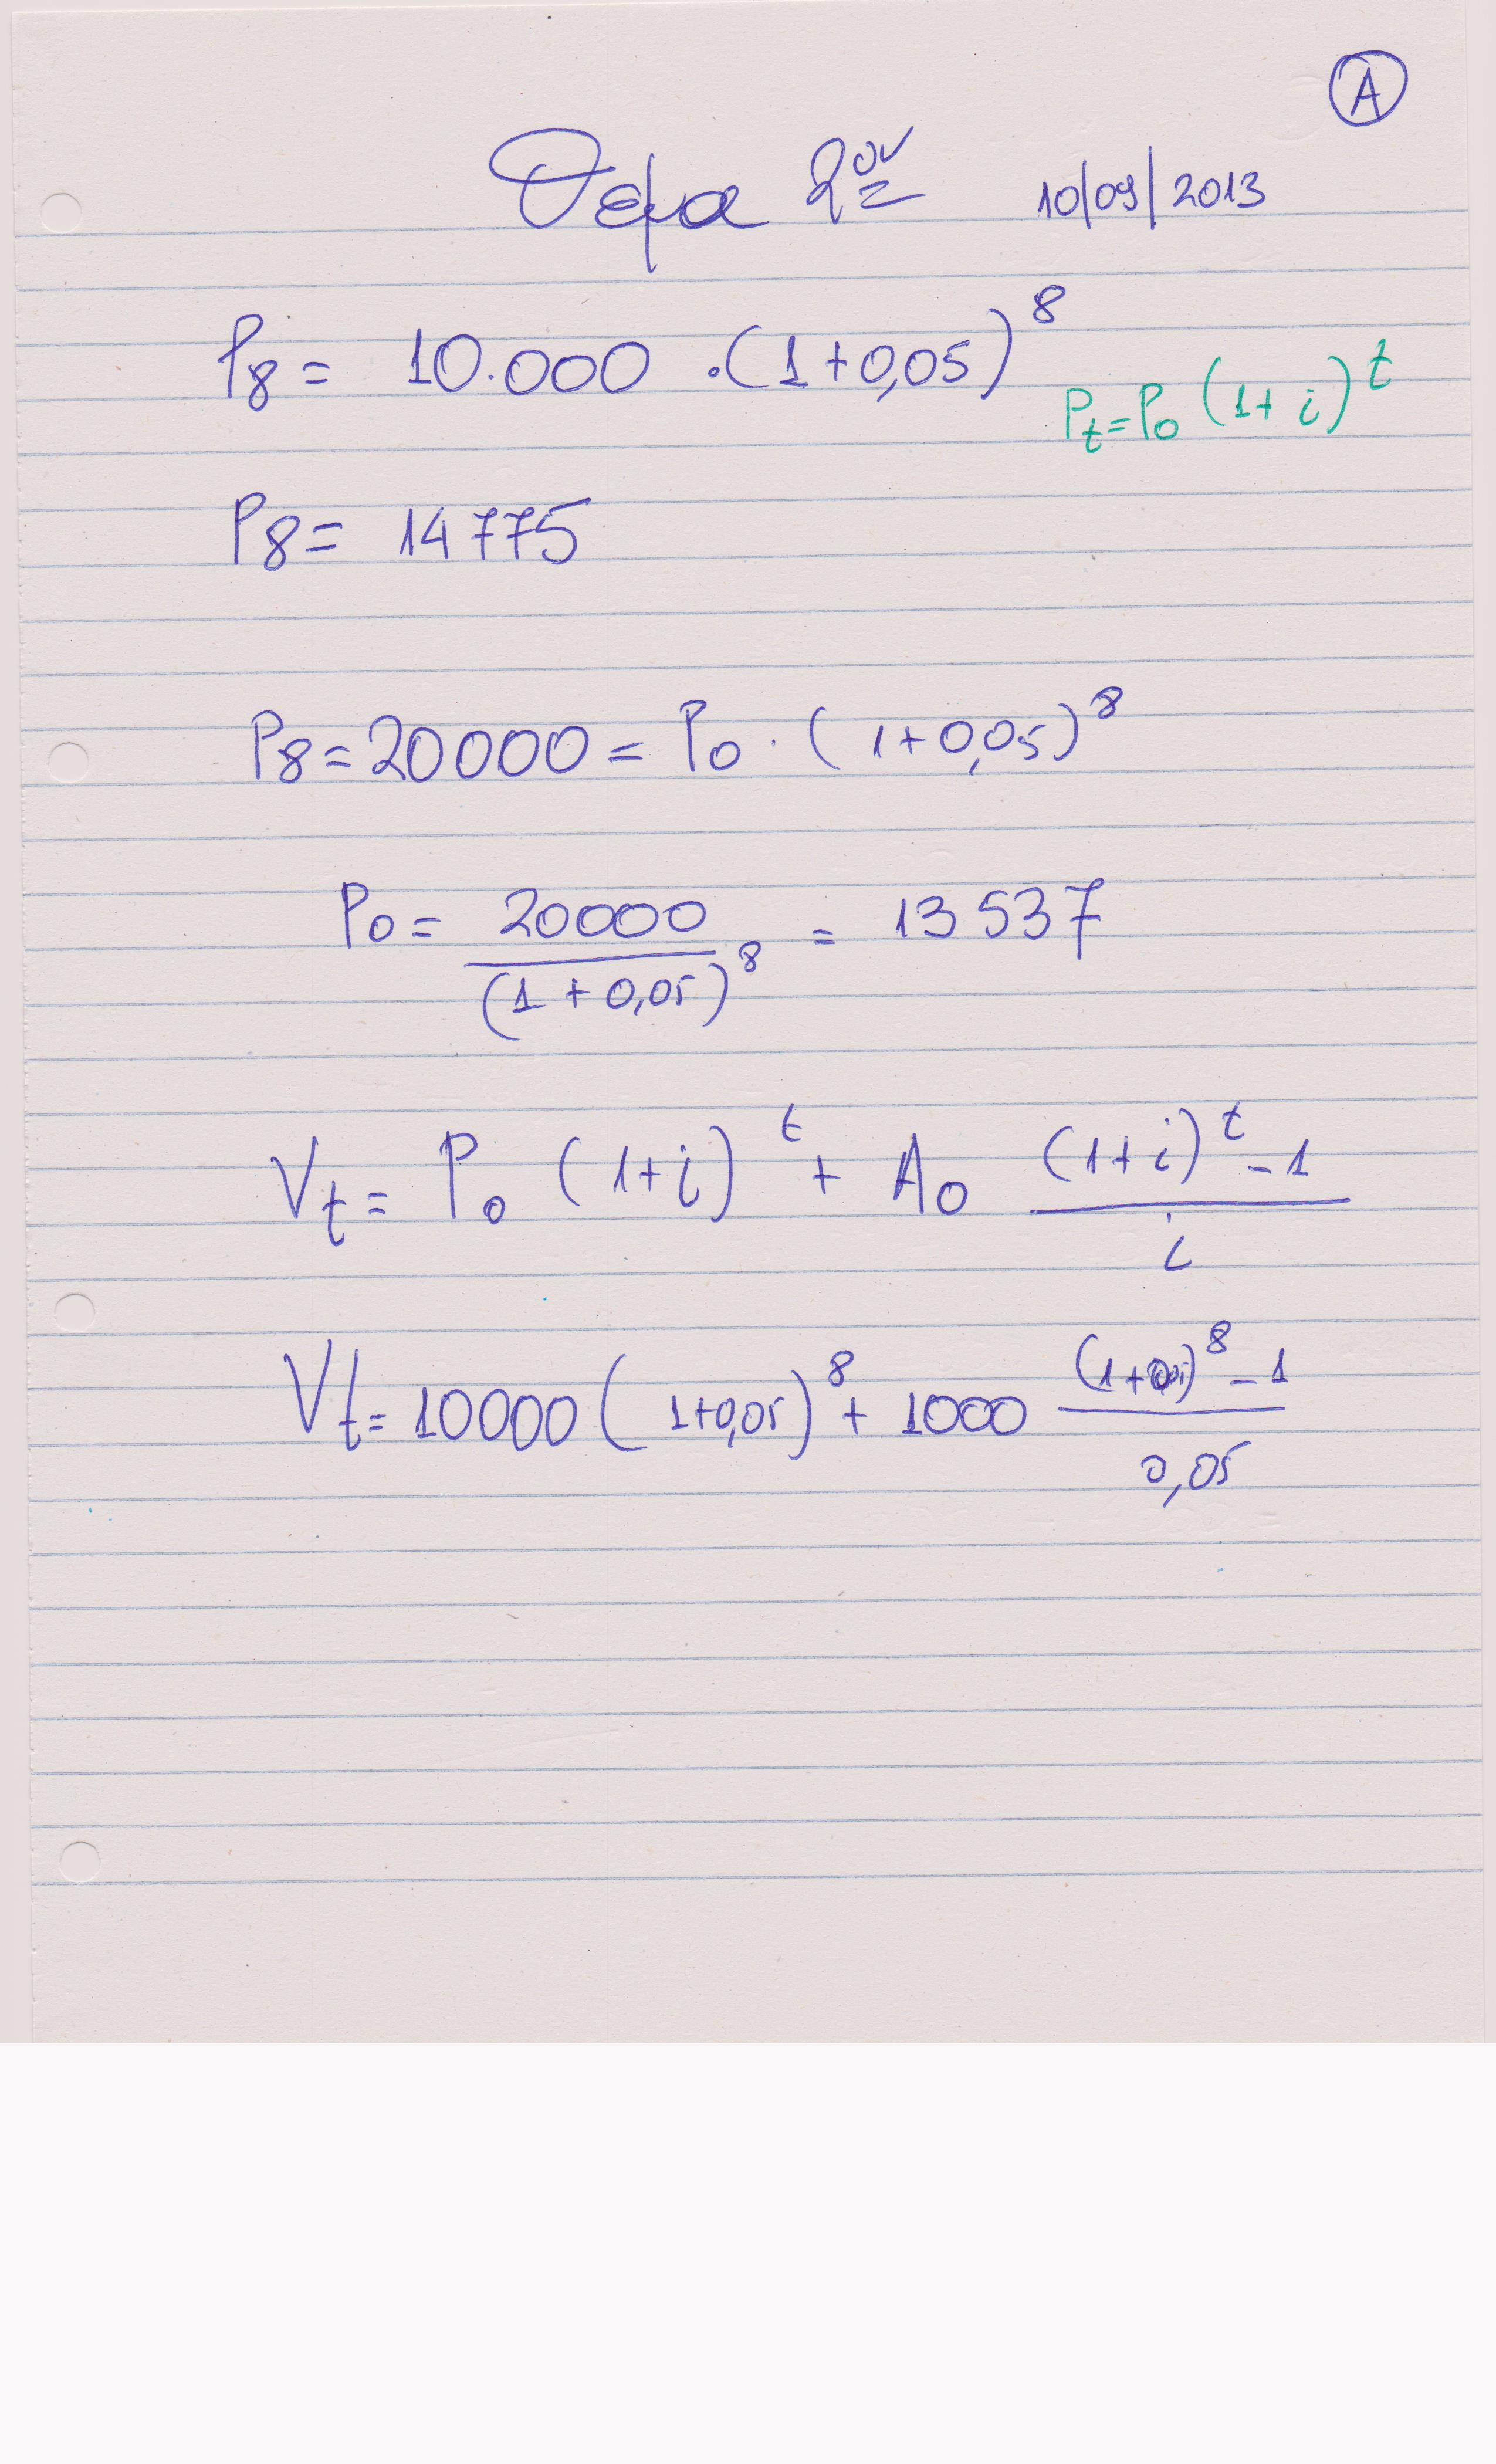 A
Θέμα 2ον 10/09/2013
P8 = 10.000 · (1+0,05)^8
Pt = P0 (1+i)^t
P8 = 14775
P8 = 20000 = P0 · (1+0,05)^8
P0 = 20000 / (1+0,05)^8 = 13537
Vt = P0 (1+i)^t + A0 ((1+i)^t - 1) / i
Vt = 10000 (1+0,05)^8 + 1000 ((1+0,05)^8 - 1) / 0,05